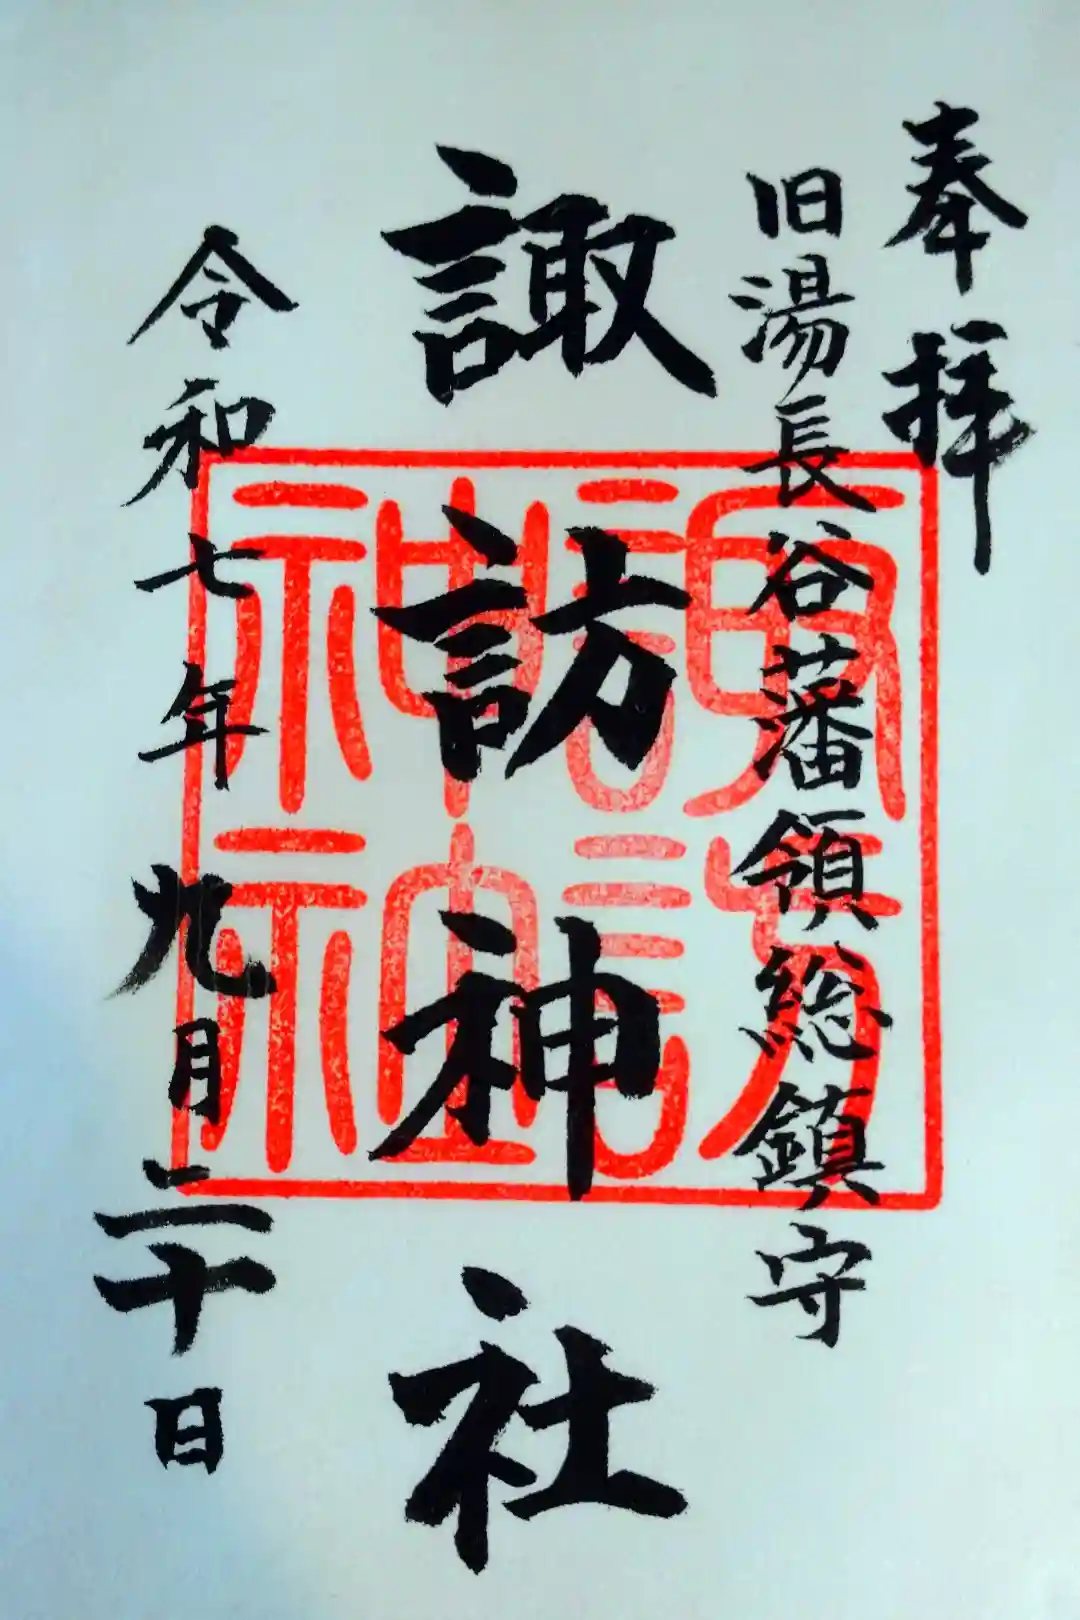 奉拝
旧湯長谷藩領総鎮守
諏訪神社
令和七年九月二十日
諏訪神社